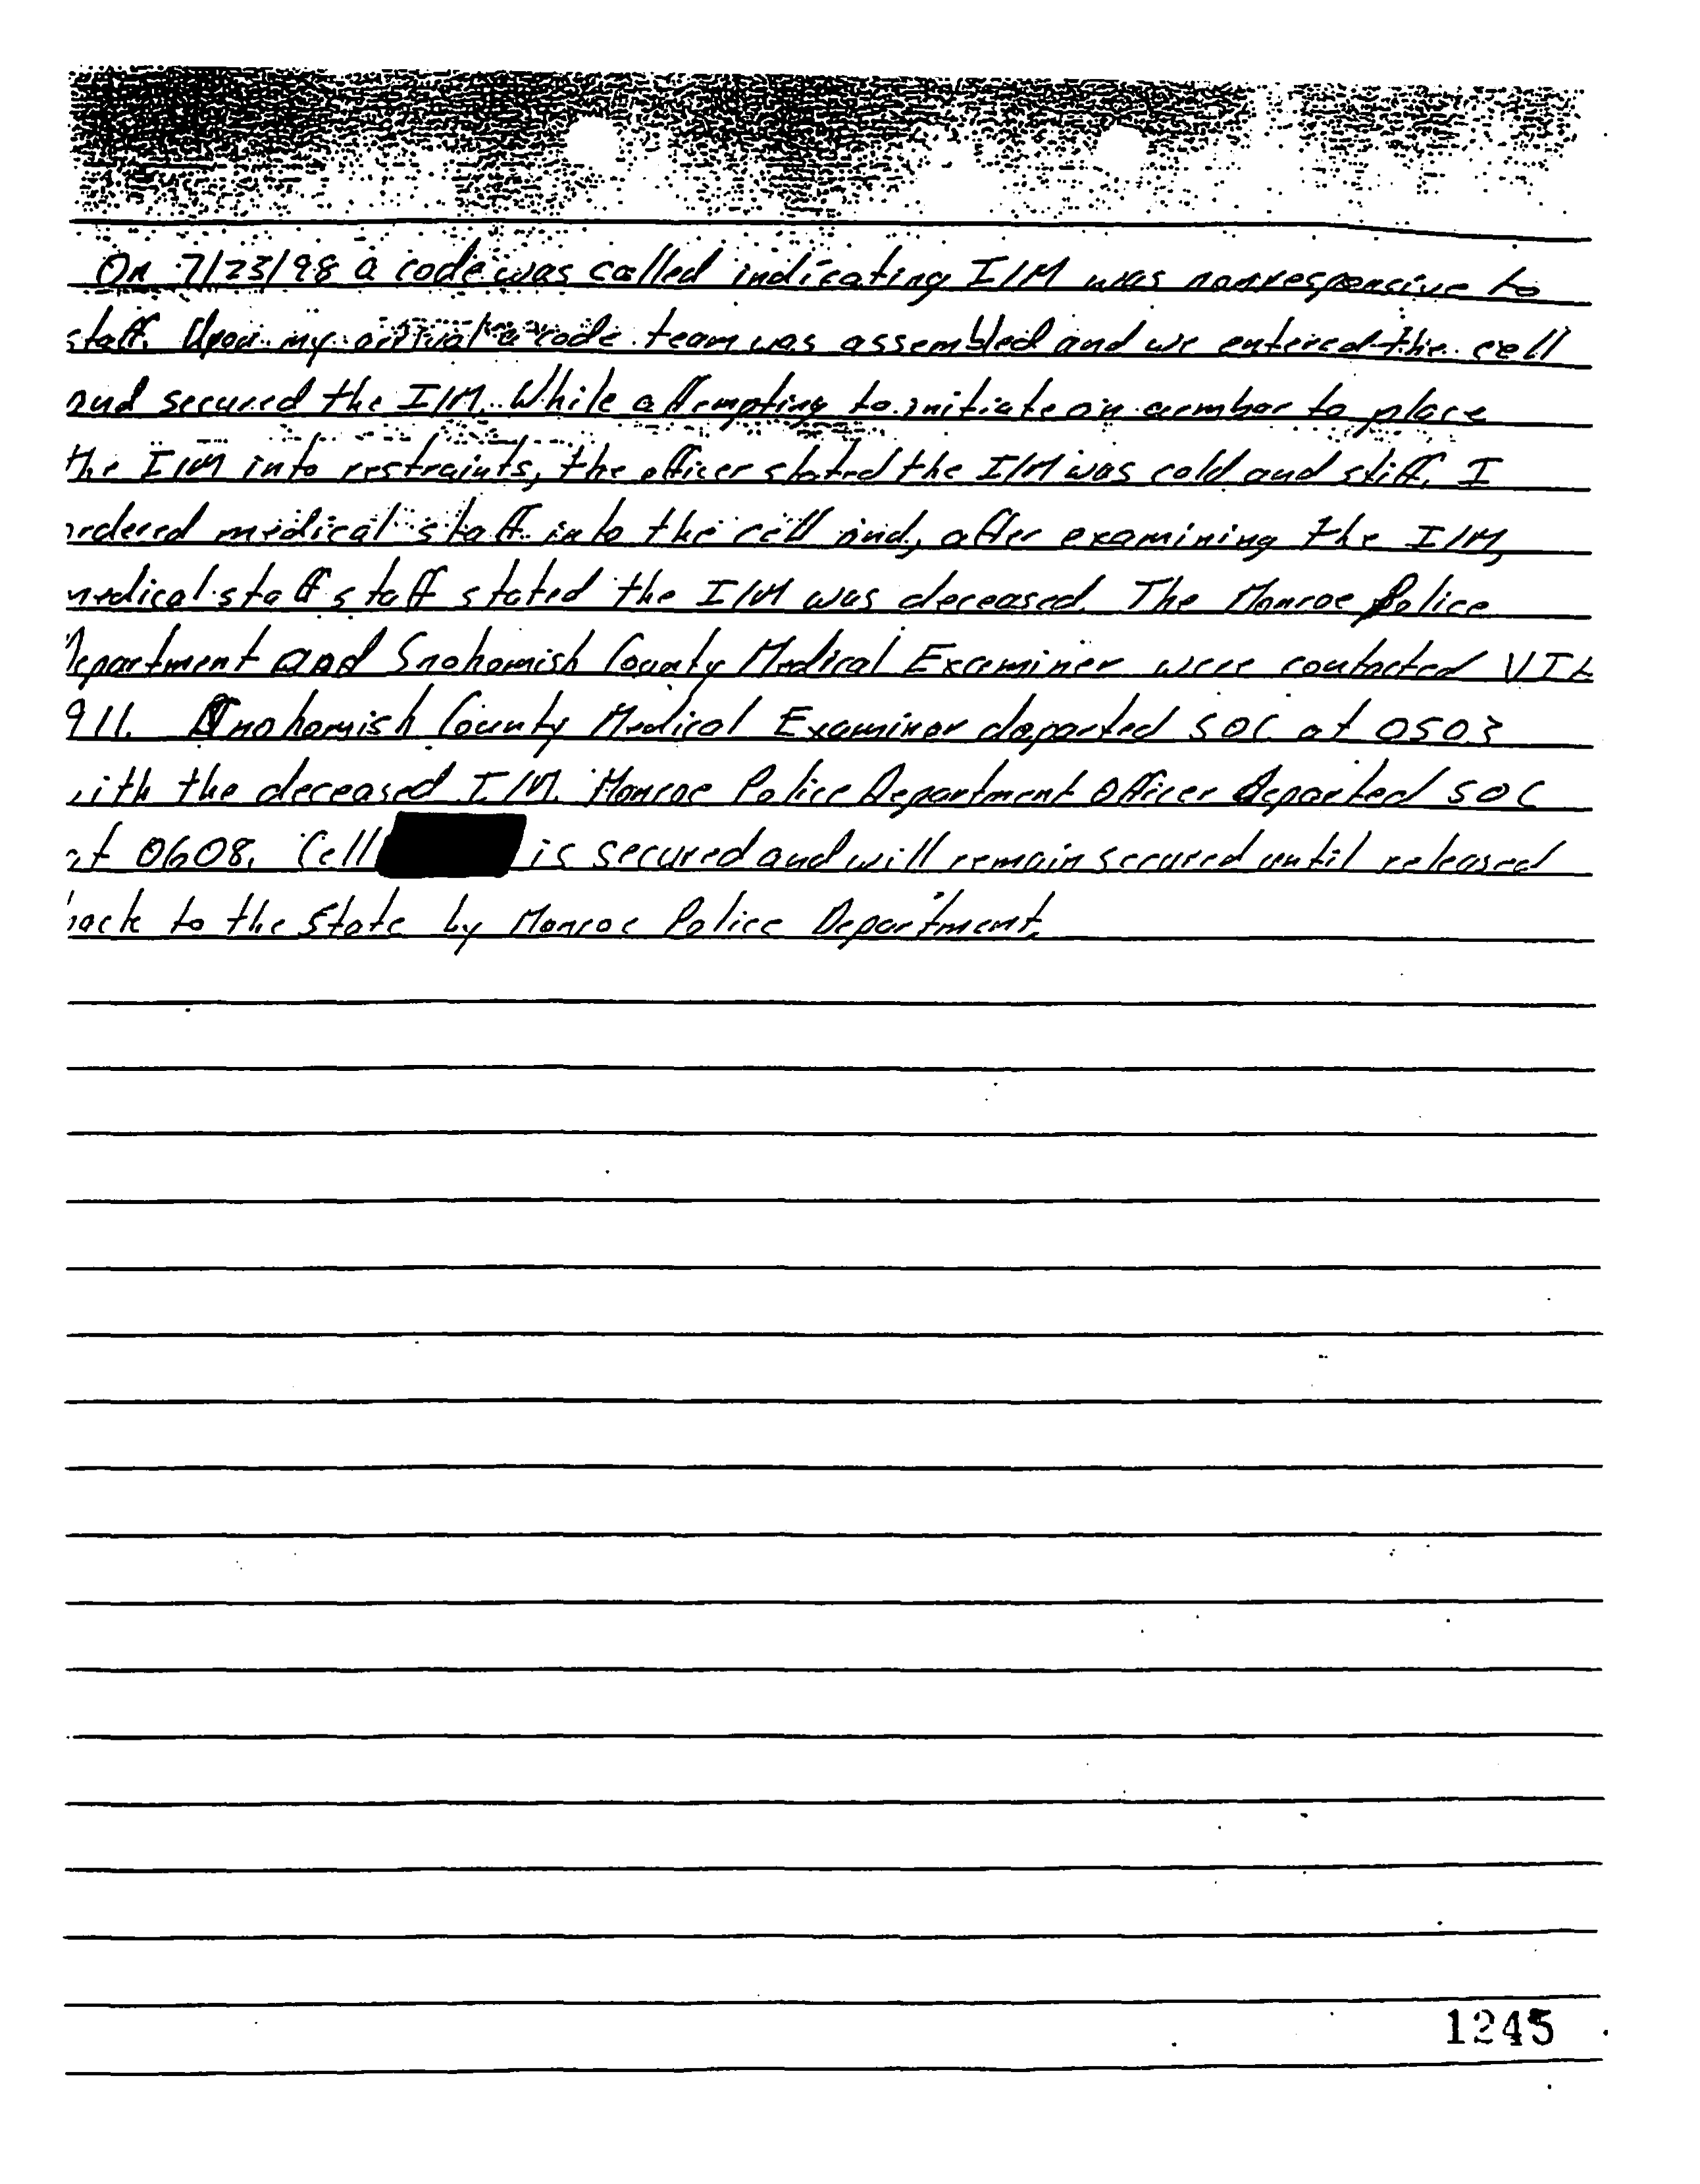 On 7/23/98 a code was called indicating I/M was nonresponsive to
staff. Upon my arrival a code team was assembled and we entered the cell
and secured the I/M. While attempting to initiate an armbar to place
the I/M into restraints, the officer stated the I/M was cold and stiff. I
ordered medical staff into the cell and, after examining the I/M,
medical staff staff stated the I/M was deceased. The Monroe Police
Department and Snohomish County Medical Examiner were contacted VIA
911. Snohomish County Medical Examiner departed SOC at 0503
with the deceased I/M. Monroe Police Department Officer departed SOC
at 0608. Cell is secured and will remain secured until released
back to the State by Monroe Police Department.
1245